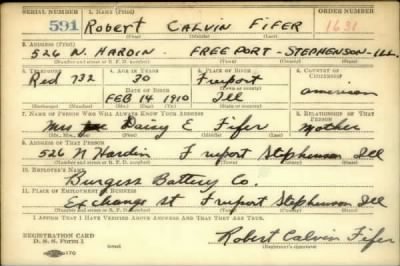 SERIAL NUMBER 1. NAME (Print) ORDER NUMBER
591 Robert CALVIN FIFER 1631
(First) (Middle) (Last)
2. ADDRESS (Print)
526 N. HARDIN. FREEPORT - STEPHENSON - ILL.
(Number and street or R. F. D. number) (Town) (County) (State)
3. TELEPHONE 4. AGE IN YEARS 5. PLACE OF BIRTH 6. COUNTRY OF CITIZENSHIP
Red 732 30 Freeport
DATE OF BIRTH
FEB 14 1910 Ill american
(Exchange) (Number) (Mo.) (Day) (Yr.) (State or country)
7. NAME OF PERSON WHO WILL ALWAYS KNOW YOUR ADDRESS 8. RELATIONSHIP OF THAT PERSON
Mrs Daisy E Fifer Mother
(Mr., Mrs., Miss) (First) (Middle) (Last)
9. ADDRESS OF THAT PERSON
526 N Hardin Freeport Stephenson Ill
(Number and street or R. F. D. number) (Town) (County) (State)
10. EMPLOYER'S NAME
Burgess Battery Co.
11. PLACE OF EMPLOYMENT OR BUSINESS
Exchange st Freeport Stephenson Ill
(Number and street or R. F. D. number) (Town) (County) (State)
I AFFIRM THAT I HAVE VERIFIED ABOVE ANSWERS AND THAT THEY ARE TRUE.
REGISTRATION CARD
D. S. S. Form 1 Robert Calvin Fifer
(Registrant's signature)